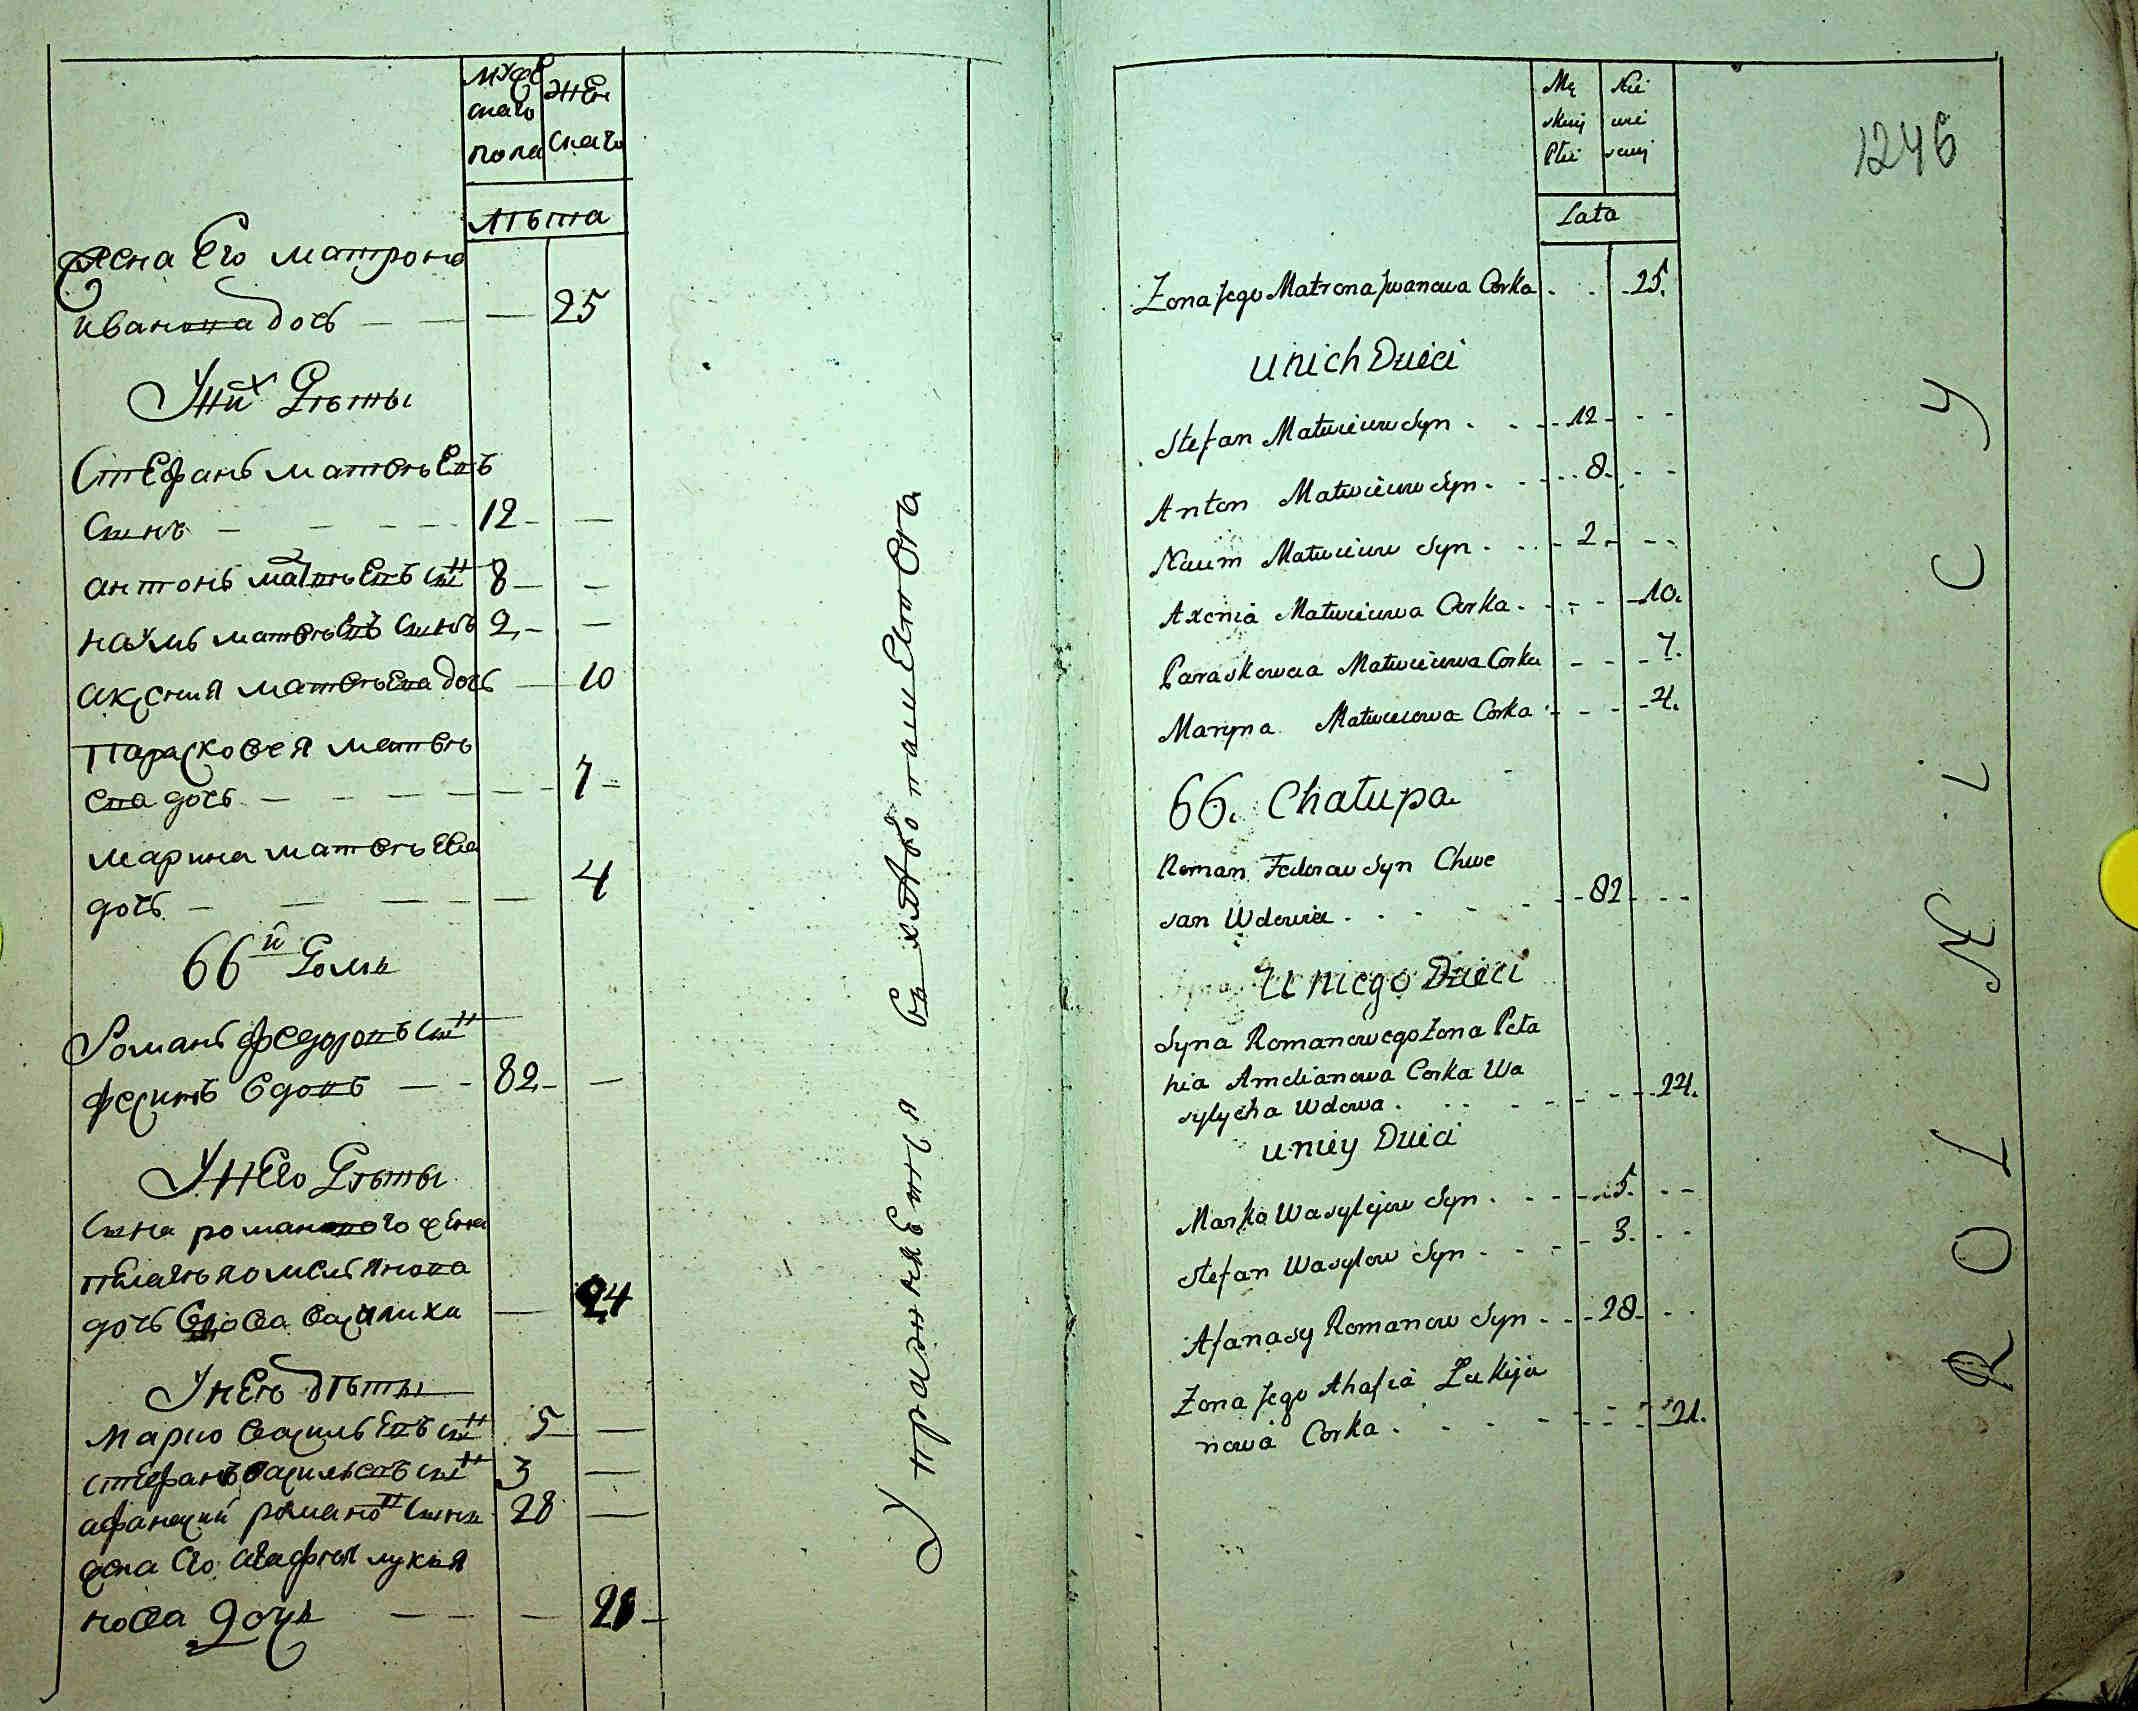 мужескаго пола
женскаго
лѣта
жена Его матрона
иванова дочь — — — 25
У них дѣти
Стефанъ матвѣевъ
сынъ — — — — 12 — —
антонъ матвѣевъ сынъ 8 — —
наумъ матвѣевъ сынъ 2 — —
аксения матвѣева дочь — 10
парасковея матвѣ
ева дочь — — — — — 7
марина матвѣева
дочь — — — — — 4
66й домъ
Романъ федоровъ сынъ
фесинъ вдовъ — — 82 — —
У него дѣти
сына романового жена
пелагѣя омельянова
дочь вдова василиха — 24
У неѣ дѣти
марко васильевъ сынъ 5 —
стефанъ васильевъ сынъ 3 —
афанасий романовъ сынъ 28 —
жена его агафия лукъя
нова дочь — — — 21
Упражняется въ хлѣбопашествѣ
Męskiej Płci
Niewiesciej
Lata
1246
Zona Jego Matrona Jwanowa Corka . . . 25.
U nich Dzieci
Stefan Matwieiew Syn . . - - 12 - - -
Anton Matwieiew Syn . - - . . 8. - -
Naum Matwieiew Syn . . . - 2. - - -
Axenia Matwieiewa Corka . - - - - 10.
Paraskowea Matwieiewa Corka - - - 7.
Maryna Matwieiewa Corka . - - - 4.
66. Chałupa
Roman Fedorow Syn Chwe
san Wdowiec . . . - - - 82 - - -
U niego Dzieci
Syna Romanowego Zona Pela
hia Amelianowa Corka Wa
sylycha Wdowa . . . - - - - 24.
U niey Dzieci
Marko Wasylejew Syn . - - - 5. - -
Stefan Wasylow Syn . . - - 3. - -
Afanasy Romanow Syn . - - 28 - . .
Zona Jego Ahafia Łukija
nowa Corka . . . - - - - 21.
ROLNICY